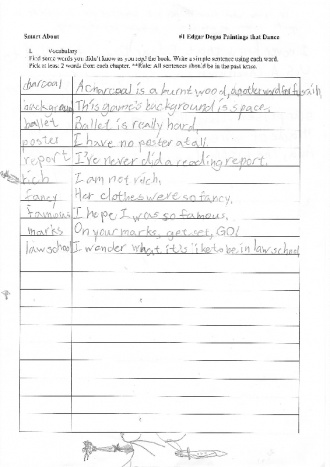 Smart About #1 Edgar Degas Paintings that Dance
I. Vocabulary
Find some words you didn't know as you read the book. Write a simple sentence using each word.
Pick at least 2 words from each chapter. **Rule: All sentences should be in the past tense.
charcoal A charcoal is a burnt wood, another word for
background This game's background is space.
ballet Ballet is really hard.
poster I have no poster at all.
report I've never did a reading report.
rich I am not rich.
fancy Her clothes were so fancy.
famous I hope I was so famous.
marks On your marks, get set, GO!
law school I wonder what it's like to be in law school